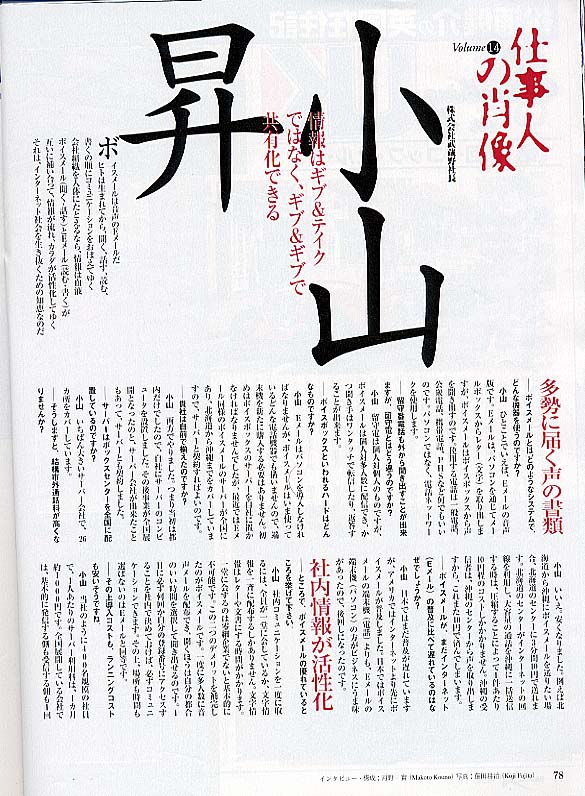 仕事人
の肖像
Volume 14
株式会社武蔵野社長
小山
昇
情報はギブ&テイク
ではなく、ギブ&ギブで
共有化できる
ボイスメールは音声のEメールだ
ヒトは生まれてから、聞く、話す、読む、
書くの順にコミュニケーションをおぼえてゆく
会社組織を人体にたとえるなら、情報は血液
ボイスメール(聞く・話す)とEメール(読む・書く)が
互いに補い合って、情報が流れ、カラダが活性化してゆく
それは、インターネット社会を生き抜くための知恵なのだ
多勢に届く声の書類
——ボイスメールとはどのようなシステムで、
どんな機器を使うのですか?
小山 ひとことでいえば、Eメールの音声
版です。Eメールは、パソコンを通じてメー
ルボックスからレター(文字)を取り出しま
すが、ボイスメールはボイスボックスから声
を聞き出すのです。使用する電話は一般電話、
公衆電話、携帯電話、PHSなど何でもいい
のです。パソコンではなく、電話ネットワー
クを使用します。
——留守番電話も外から聞き出すことが出来
ますが、留守電とはどう違うのですか?
小山 留守電は個人対個人のものですが、
ボイスメールは個人対多人数に配信でき、か
つ聞き手はボックスで転信したり、返答す
ることが出来ます。
——ボイスボックスといわれるハードはどん
なものですか?
小山 Eメールはパソコンを導入しなけれ
ばなりませんが、ボイスメールはいま使って
いるどんな電話機器でも構いませんので、端
末機を新たに購入する必要はありません。初
めはボイスボックスのサーバーを自社に置か
なければなりませんでしたが、最近ではEメ
ール同様のボイスメールのサーバーが全国に
あり、北海道から沖縄までをカバーしていま
すので、サーバーと契約すればよいのです。
——貴社は自前で揃えたのですか?
小山 両方でやりました。つまり当初は都
内だけでしたので、自社にサーバーのコンピ
ュータを設置しました。その後事業が全国展
開となったのと、サーバー会社が出来たこと
もあって、サーバーとも契約しました。
——サーバーはボックスセンターを全国に配
置しているのですか?
小山 いちばん大きいサーバー会社で、26
カ所をカバーしています。
——そうしますと、結構市外通話料が高くな
りませんか?
小山 いいえ、安くなりました。例えば、北
海道から沖縄にボイスメールを送りたい場
合、北海道のセンターに1分間10円で送れま
す。北海道のセンターがインターネットの回
線を利用し、大容量の通話を沖縄に一括送信
する時は、圧縮することによって1件あたり
10円程のコストしかかかりません。沖縄の受
信者は、沖縄のセンターから声を取り出しま
すから、これまた10円で済んでしまいます。
——ボイスメールが、まだインターネット
(Eメール)の普及に比べて遅れているのはな
ぜでしょうか?
小山 日本ではまだ普及が遅れています
が、アメリカではインターネットより先にボ
イスメールが普及しました。日本ではボイス
メールの端末機(電話)よりも、Eメールの
端末機(パソコン)の方がビジネスにうま味
があったので、後回しになったのです。
社内情報が活性化
——ところで、ボイスメールの優れていると
ころを挙げて下さい。
小山 社内コミュニケーションを一度に取
るには、全員が一堂に会しているか、文字情
報を一斉に配布するしかありません。文字情
報は一般に、清書に時間がかかります。
一堂に会するのは零細企業でないと基本的に
不可能です。この二つのデメリットを補完し
たのがボイスメールです。一度に多人数に音
声メールを配布でき、聞くほうは自分の都合
のいい時間を選択して聞き出せるのです。1
日に必ず何回か自分の登録番号にアクセスす
ることを社内で決めておけば、必ずコミュニ
ケーションできます。その上、場所も時間も
選ばないのはEメールと同等です。
——その上導入コストも、ランニングコスト
も安いそうですね
小山 当社のように100名規模の社員
で、1人のサーバー利用料は、1カ月
約1000円です。全国展開している会社で
は、基本的に発信する側も受信する側も1回
インタビュー・構成：河野 真(Makoto Kouno) 写真：藤田浩治(Koji Fujita)
78